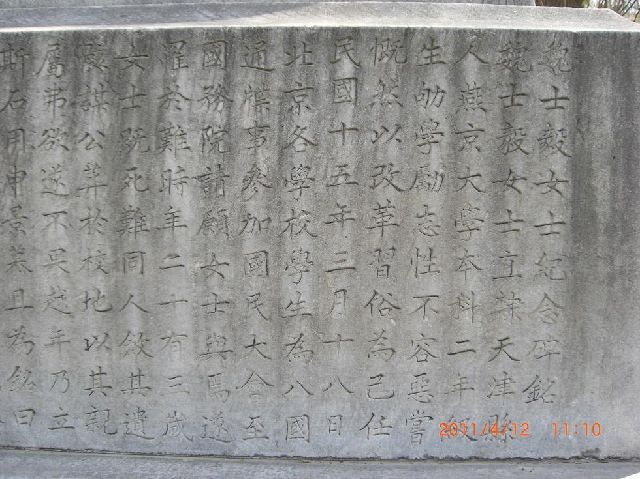 魏士毅女士紀念碑銘
魏士毅女士直隸天津縣
人燕京大學本科二年級
生劬學勵志性不容惡嘗
慨然以改革習俗為己任
民國十五年三月十八日
北京各學校學生為八國
通牒事參加國民大會至
國務院請願女士與焉遂
罹於難時年二十有三歲
女士既死難同人斂其遺
骸謀公葬於校地以其親
屬弗欲遂不果越年乃立
斯石用申景慕且為銘曰
2011/4/12 11:10